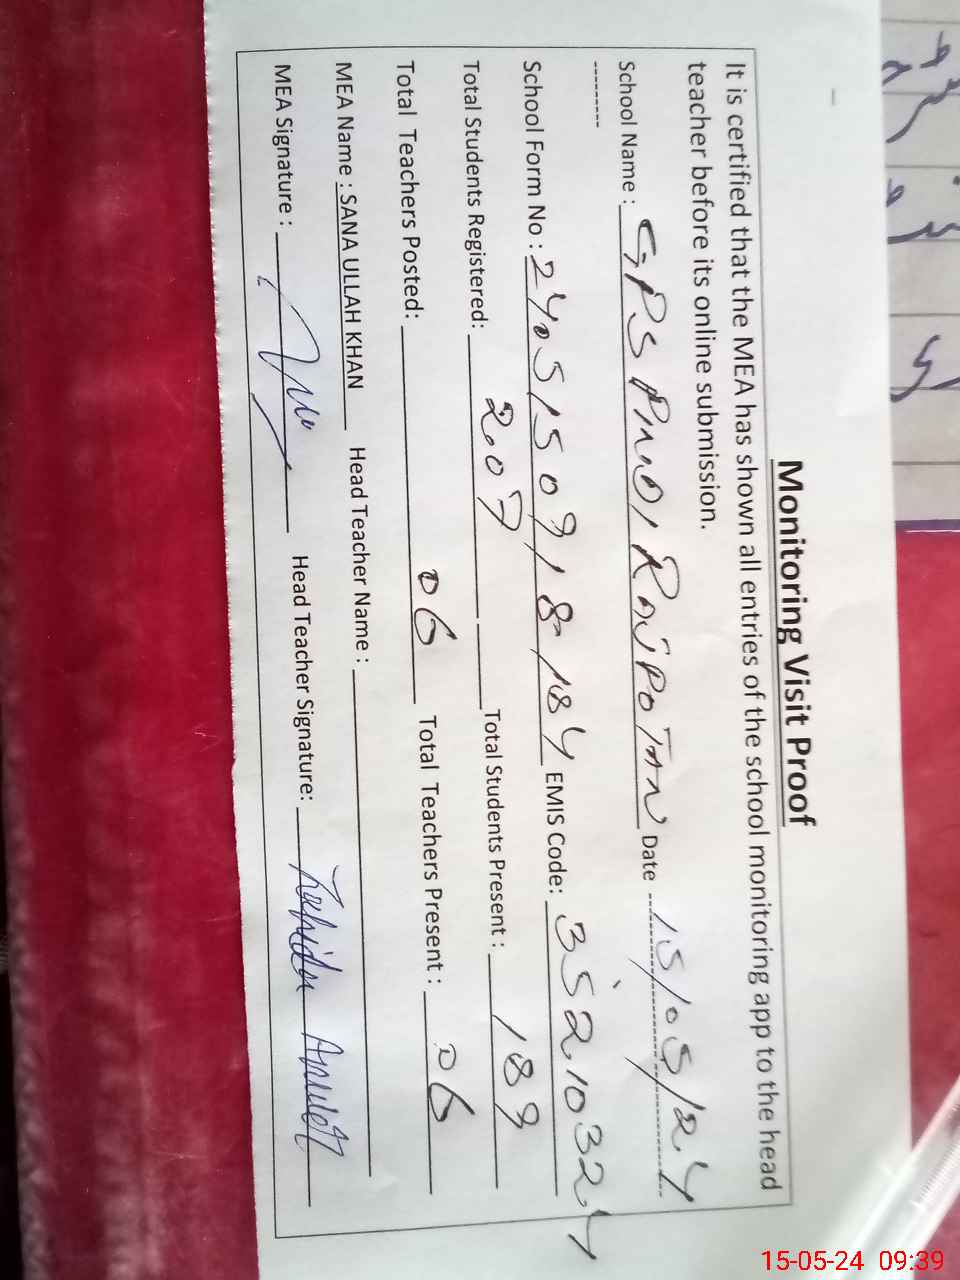 Monitoring Visit Proof
It is certified that the MEA has shown all entries of the school monitoring app to the head
teacher before its online submission.
School Name : GPS PINDI RAJPOTAN Date 15/05/24
School Form No : 2405150918184 EMIS Code: 35210324
Total Students Registered: 207 Total Students Present : 189
Total Teachers Posted: 06 Total Teachers Present : 06
MEA Name : SANA ULLAH KHAN Head Teacher Name :
MEA Signature : Head Teacher Signature:
15-05-24 09:39